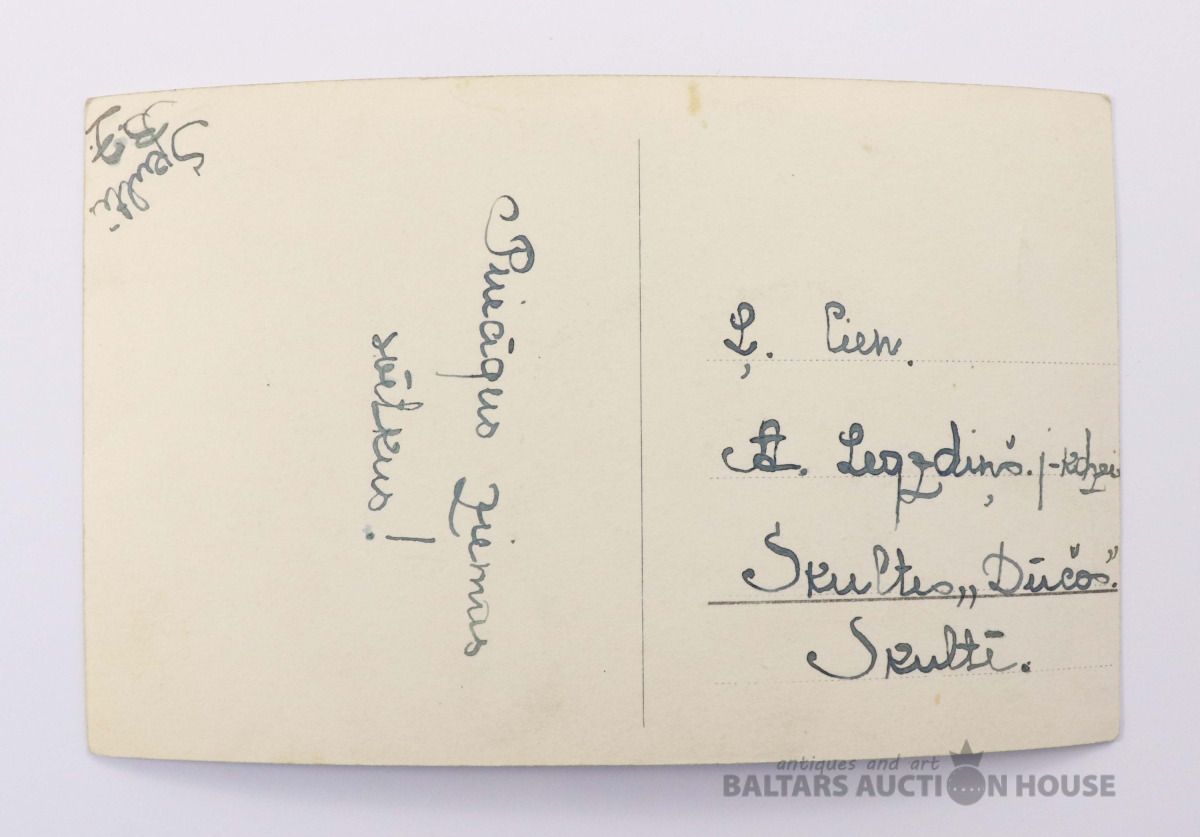 Skultē
Priecīgus ziemas
svētkus!
Ļ. cien.
A. Legzdiņš. j-kdzei
Skultes „Dūčos”.
Skultē.
antiques and art
BALTARS AUCTION HOUSE